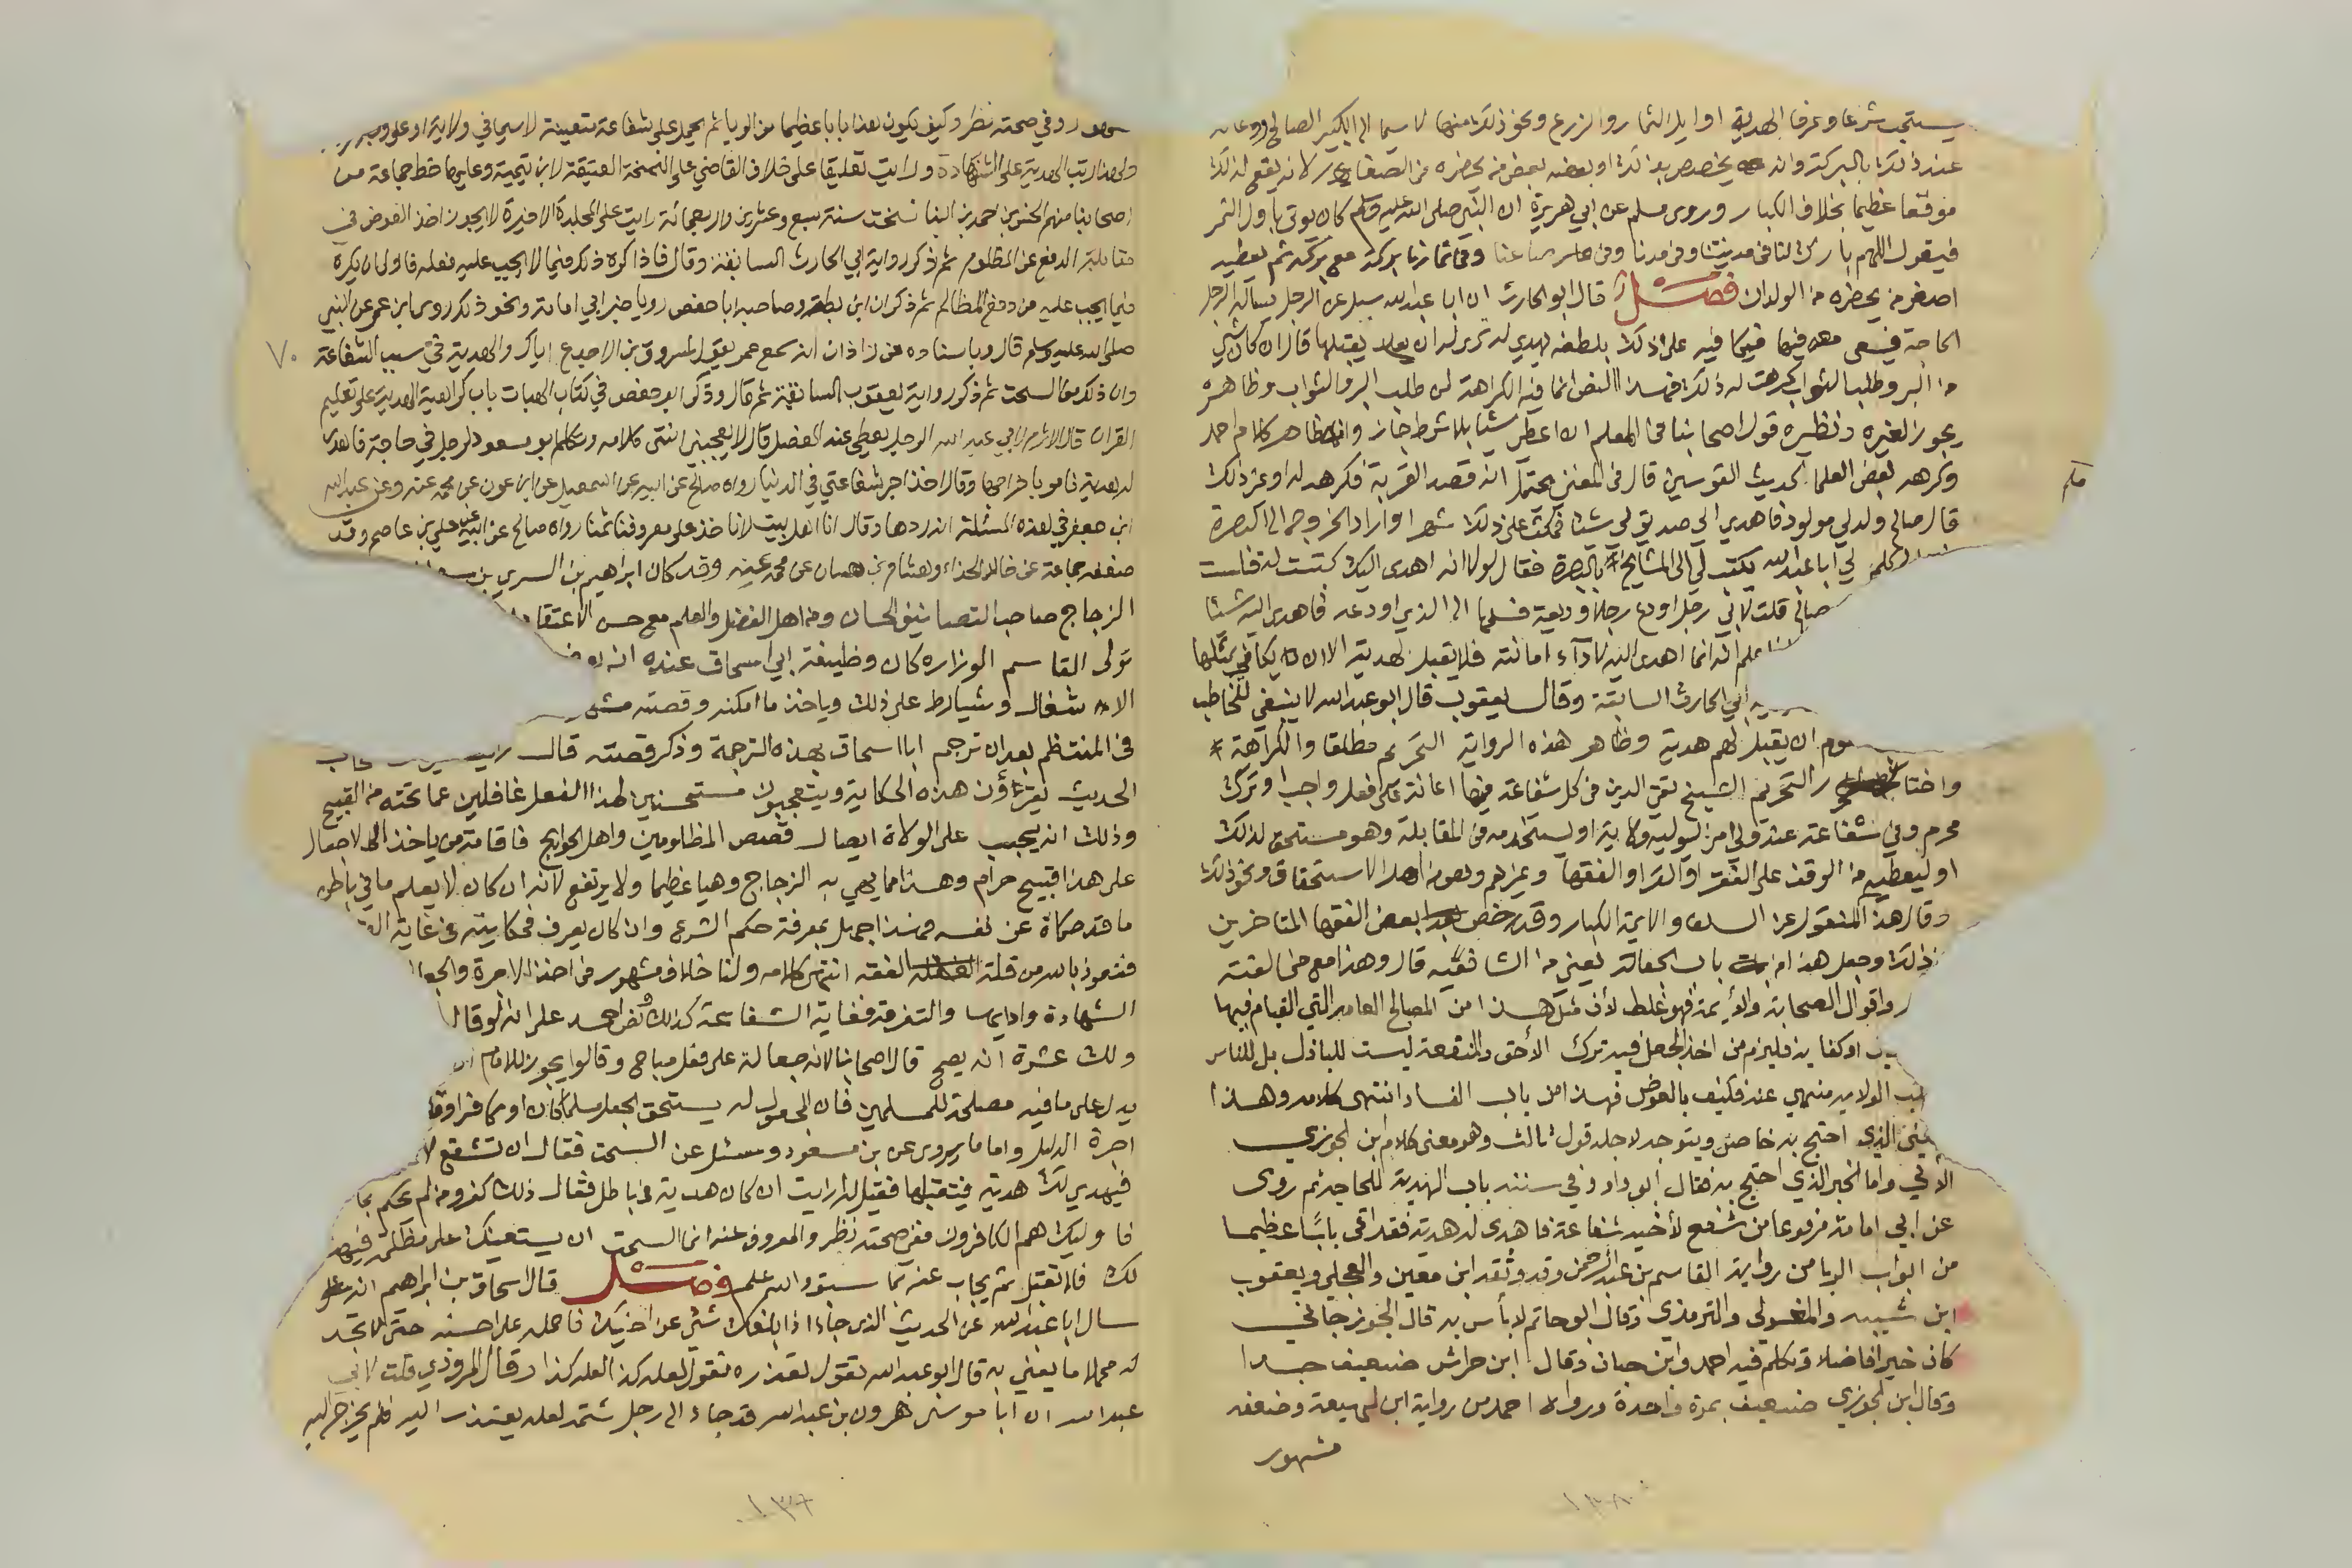 يستحب شرعا وعرفا الهدية اوايل الثمار والزرع ونحو ذلك منها لا سيما الى الكبير الصالح ودعايه
عند ذلك بالبركة وانه يخصص بذلك او بعضه بعض من يحضره من الصغار لانه يقع لذلك
موقعا عظيما بخلاف الكبار وروى مسلم عن ابي هريرة ان النبي صلى الله عليه وسلم كان يوتى باول الثمر
فيقول اللهم بارك لنا في مدينتنا وفي مدنا وفي صاعنا وفي ثمارنا بركة مع بركة ثم يعطيه
اصغر من يحضره من الولدان فصل قال ابو الحارث ان ابا عبدالله سيل عن الرجل يساله الرجل
الحاجة فيسعى معه فيها فيكافيه على ذلك بلطفه يهدي له ترى له ان يقبلها قال ان كان شي
من البر وطلب الثواب كرهت له ذلك فهذا النص انما فيه الكراهة لمن طلب البر والثواب وظاهره
يجوز لغيره ونظيره قول اصحابنا في المعلم ان اعطي شيئا بلا شرط جاز وانه ظاهر كلام احمد
وكرهه بعض العلما لحديث القوس قال في المغني يحتمل انه قصد القربة فكرهه له او غير ذلك
قال صالح ولد لي مولود فاهدى الي صديق لي شيئا فمكث على ذلك شهرا واراد الخروج الى البصرة
كلم لي ابا عبدالله يكتب لي الى المشايخ بالبصرة فقال لولا انه اهدى اليك كتبت له قلت
صالح قلت لابي رجل اودع رجلا وديعة فسلمها الى الذي اودعه فاهدى اليه شيئا
علم انه انما اهدى اليه لادآء امانته فلا يقبل هديته الا ان يكافي بمثلها
ابي الحارث السابقة وقال يعقوب قال ابو عبدالله لا ينبغي للخاطب
ان يقبل لهم هدية وظاهر هذه الرواية التحريم مطلقا والكراهة
واختار التحريم الشيخ تقي الدين في كل شفاعة فيها اعانة على فعل واجب او ترك
محرم وفي شفاعة عند ولي امر ليوليه ولاية او يستخدمه في المقابلة وهو مستحق لذلك
او ليعطيه من الوقف على الفقرا او القرا او الفقها وغيرهم وهو من اهل الاستحقاق ونحو ذلك
وقال هذا المنقول عن السلف والايمة الكبار وقد رخص بعض الفقها المتاخرين
ذلك وجعل هذا من باب الجعالة يعني من الشافعية قال وهذا مع مخالفته
واقوال الصحابة والأيمة فهو غلط لأن مثل هذا من المصالح العامة التي القيام فيها
او كفاية فيلزم من اخذ الجعل فيه ترك الأحق والمنفعة ليست للباذل بل للناس
الولاية منهي عنه فكيف بالعوض فهذا من باب الفساد انتهى كلامه وهذا
الذي احتج به خاص ويتوجه لاجله قول ثالث وهو معنى كلام ابن الجوزي
الأتي واما الخبر الذي احتج به فقال ابو داود في سننه باب الهدية للحاجة ثم روى
عن ابي امامة مرفوعا من شفع لأخيه شفاعة فاهدى له هدية فقد اتى بابًا عظيما
من ابواب الربا من رواية القاسم بن عبد الرحمن وقد وثقه ابن معين والعجلي ويعقوب
ابن شيبه والترمذي وقال ابو حاتم لا بأس به قال الجوزجاني
كان خيرا فاضلا وتكلم فيه احمد وابن حبان وقال ابن خراش ضعيف جدا
وقال ابن الجوزي ضعيف بمرة واحدة ورواه احمد من رواية ابن لهيعة وضعفه
مشهور
وفي صحته نظر وكيف يكون هذا بابا عظيما من الربا ثم يحمل على شفاعة متعينة لا سيما في ولاية
ولهذا رتب الهدية على الشهادة ورايت تعليقا على خلاف القاضي على النسخة العتيقة لابن تيمية وعليها خط جماعة من
اصحابنا منهم الحسن بن احمد بن البنا نسخت سنة سبع وعشرين واربعمائة رايت على المجلدة الاخيرة لا يجوز اخذ العوض في
مقابلة الدفع عن المظلوم ثم ذكر رواية ابي الحارث السابقة وقال فاذا كره ذلك فيما لا يجب عليه فعله فاولى ان يكره
فيما يجب عليه من دفع المظالم ثم ذكر ان ابن بطة وصاحبه ابا حفص رويا خبر ابي امامة ونحو ذلك وروى ابن عمر عن النبي
صلى الله عليه وسلم قال وباسناده عن زاذان انه سمع عمر يقول لمسروق بن الاجدع اياك والهدية في سبب الشفاعة
وان ذلك من السحت ثم ذكر رواية يعقوب السابقة ثم قال وذكر ابو حفص في كتاب الهبات باب كراهية الهدية على تعليم
القران قال الاثرم لابي عبد الله الرجل يعطى عند الفصل قال لا يعجبني انتهى كلامه وكلم ابو مسعود لرجل في حاجة فاهدى
له هدية فامر باخراجها وقال اخذ اجر شفاعتي في الدنيا رواه صالح عن ابيه عن اسمعيل عن ابن عون عن محمد عنه وعن عبدالله
ابن جعفر في هذه المسئلة انه ردها وقال انا اهل بيت لا ناخذ على معروفنا ثمنا رواه صالح عن ابيه عن علي بن عاصم وقد
ضعفه جماعة عن خالد الحذاء وهشام بن حسان عن محمد عنه وقد كان ابراهيم بن السري بن
الزجاج صاحب التصانيف الحسان ومن اهل الفضل والعلم مع حسن الاعتقاد
تولى القاسم الوزاره كان وظيفة ابي اسحاق عنده انه
الاشغال ويشارط على ذلك وياخذ ما امكنه وقصته
في المنتظم بعد ان ترجم ابا اسحاق بهذه الترجمة وذكر قصته قال
الحديث يقرءؤن هذه الحكاية ويتعجبون مستحسنين لهذا الفعل غافلين عما تحته من القبيح
وذلك انه يجب على الولاة ايصال قصص المظلومين واهل الحوايج فاقامة من ياخذ الاجعال
على هذا قبيح حرام وهذا مما يهي به الزجاج وهيا عظيما ولا يرتفع لأنه ان كان لا يعلم ما في باطن
ما قد حكاه عن نفسه فهذا جهل بمعرفة حكم الشرع وان كان يعرف فحكايته في غاية
فنعوذ بالله من قلة الفقه انتهى كلامه ولنا خلاف مشهور في اخذ الاجرة والجعل
الشهادة وادايها والتفرقة فغاية الشفاعة كذلك ونص احمد على انه لو قال
ولك عشرة انه يصح قال اصحابنا لانه جعالة على فعل مباح وقالوا يجوز للامام
يدل على ما فيه مصلحة للمسلمين فان المجعول له يستحق الجعل مسلما كان او كافرا
اجرة الدليل واما ما يروى عن بن مسعود وسئل عن السحت فقال ان تشفع
فيهدي لك هدية فتقبلها فقيل له ارايت ان كان هدية في باطل فقال ذلك كفر ومن لم يحكم بما
فاوليك هم الكافرون ففي صحته نظر والمعروف عنه انما السحت ان يستعينك على مظلمة فيهدي
لك فلا تقبل ثم يجاب عنه بما سبق والله اعلم فصل قال اسحاق بن ابراهيم انه
سال ابا عبدالله عن الحديث الذي جاء اذا بلغك شئ عن اخيك فاحمله على احسنه حتى لا تجد
له محملا ما يعني به قال ابو عبدالله تقول تعذره تقول لعله كذا لعله كذا وقال المروذي قلت لابي
عبدالله ان ابا موسى هرون بن عبدالله قد جاء الى رجل شتمه لعله يعتذر اليه فلم يخرج اليه
٧٠